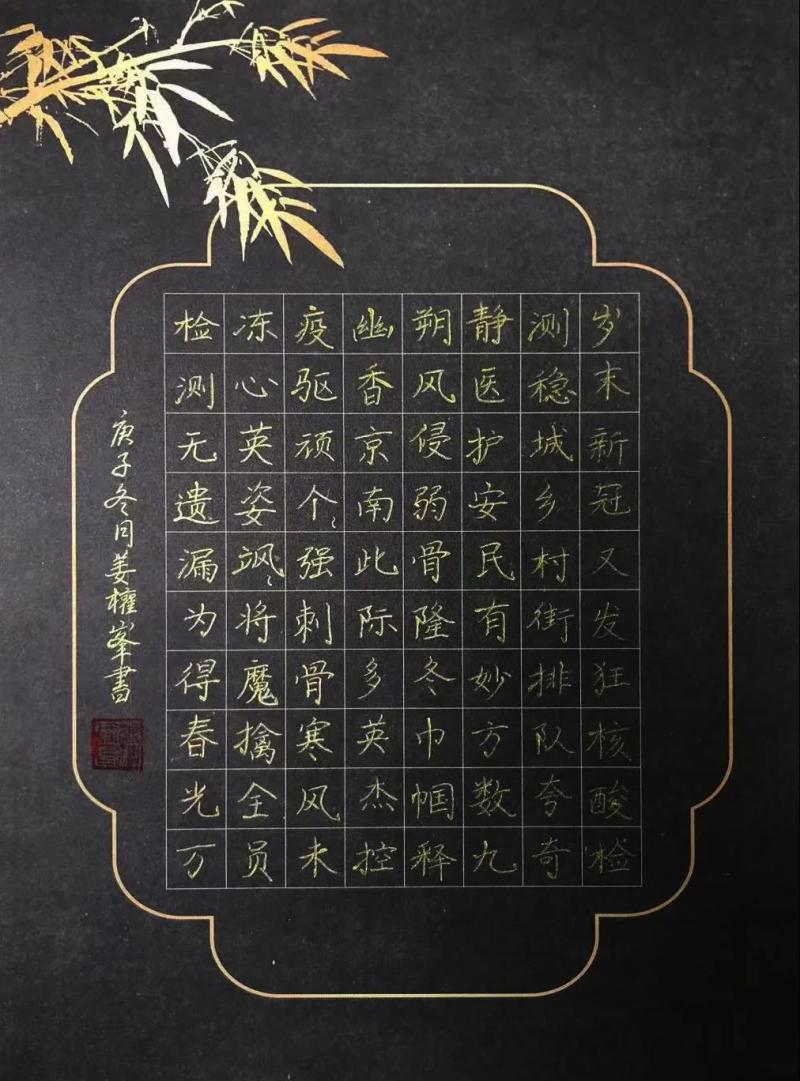 岁末新冠又发狂核酸检
测稳城乡村街排队夸奇
静医护安民有妙方数九
朔风侵弱骨隆冬巾帼释
幽香京南此际多英杰控
疫驱顽个〻强刺骨寒风未
冻心英姿飒〻将魔擒全员
检测无遗漏为得春光万
庚子冬月姜權峯書